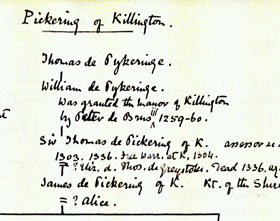 Pickering of Killington.
Thomas de Pykeringe.
William de Pykeringe.
Was granted the manor of Killington
by Peter de Brus III 1259-60.
Sir Thomas de Pickering of K. assessor
1303. 1336. Free Warr. at K. 1304.
= ? Eliz. d. Thos. de Greystoke. Dead 1336.
James de Pickering of K. Kt. of the Shire
= ? Alice.